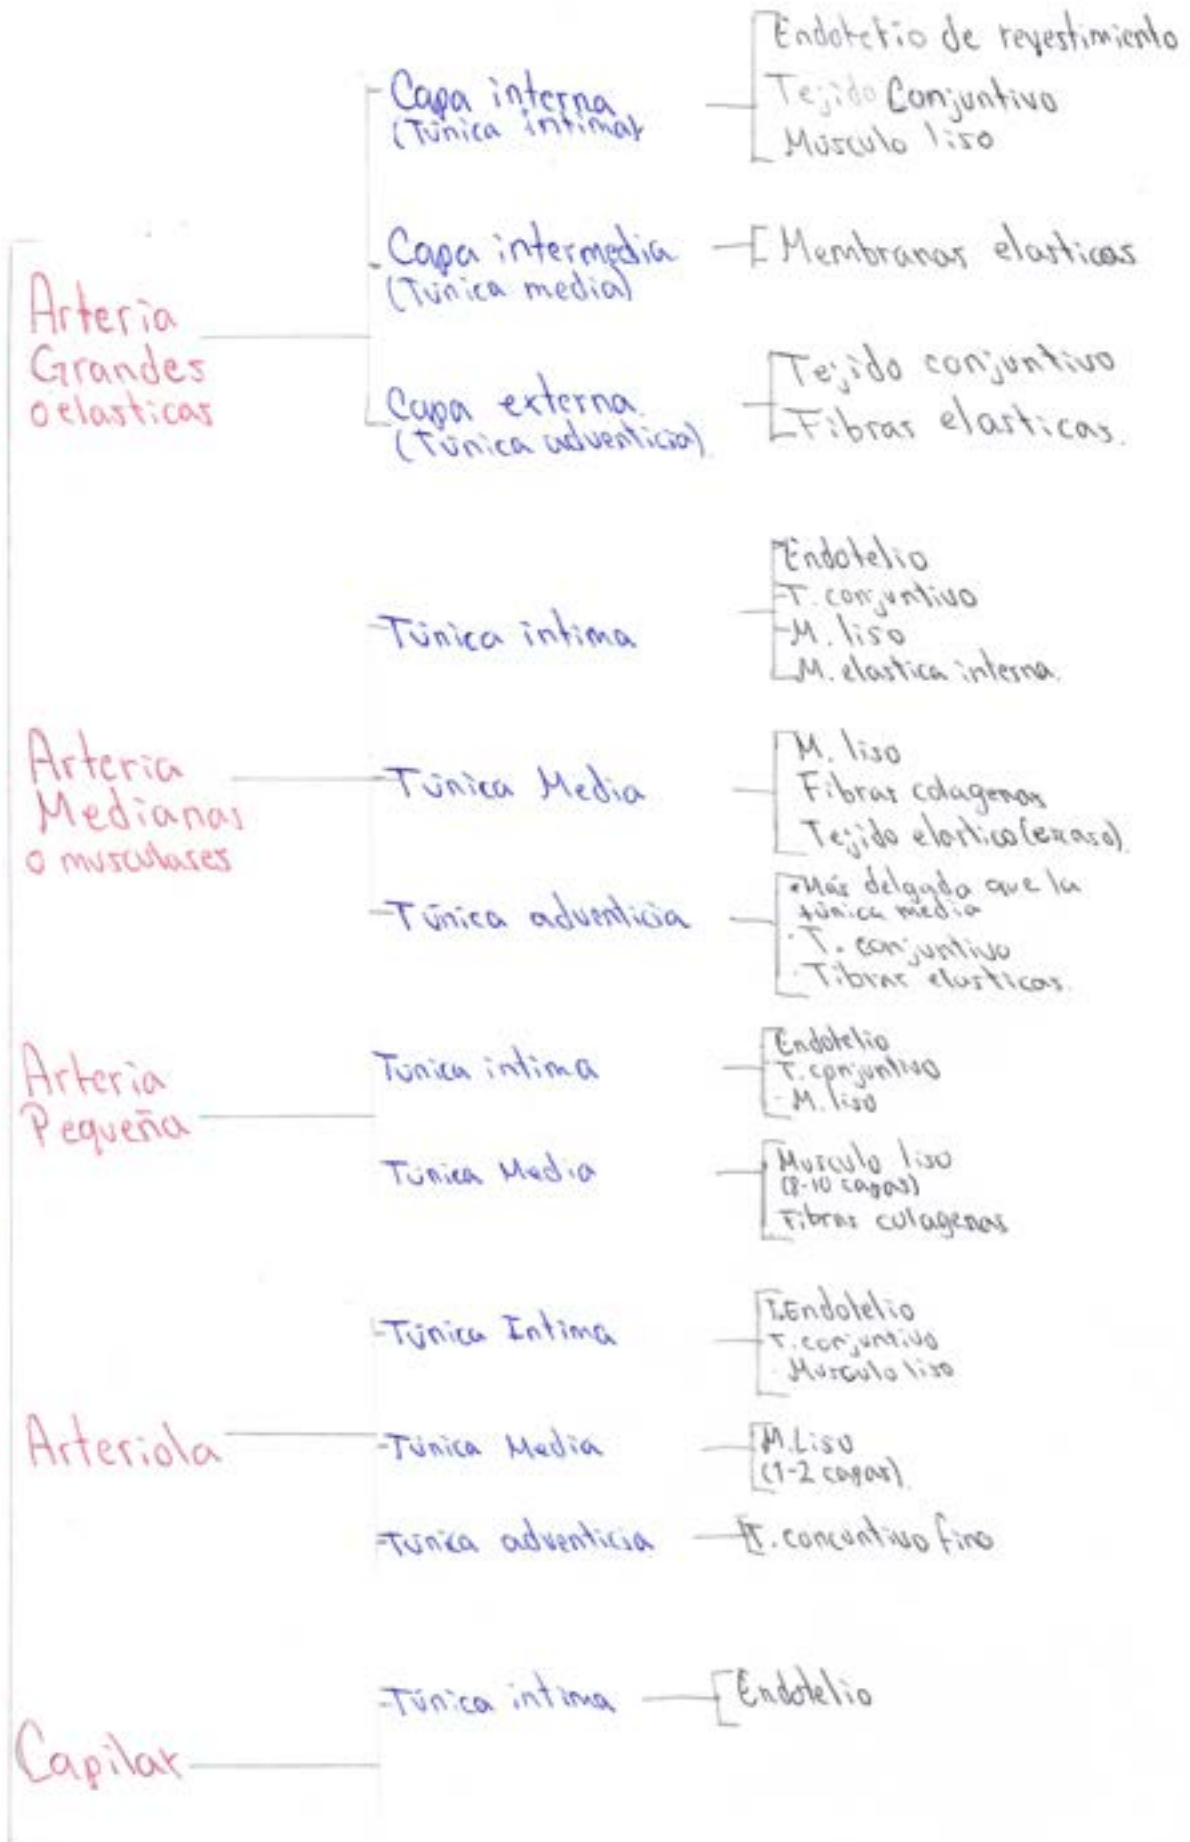 Endotelio de revestimiento
Capa interna
(Túnica intima)
Tejido Conjuntivo
Músculo liso
Capa intermedia
(Túnica media)
Membranas elasticas
Arteria
Grandes
o elasticas
Capa externa
(Túnica adventicia)
Tejido conjuntivo
Fibras elasticas.
Túnica intima
Endotelio
T. conjuntivo
M. liso
M. elastica interna.
Arteria
Medianas
o musculares
Túnica Media
M. liso
Fibras colagenas
Tejido elastico (escaso)
Túnica adventicia
•Más delgada que la
túnica media
· T. conjuntivo
· Fibras elasticas.
Arteria
Pequeña
Túnica intima
Endotelio
T. conjuntivo
- M. liso
Túnica Media
Musculo liso
(8-10 capas)
Fibras colagenas
Arteriola
Túnica Intima
Endotelio
T. conjuntivo
· Musculo liso
Túnica Media
M. Liso
(1-2 capas)
Túnica adventicia
T. concuntivo fino
Capilar
Túnica intima
Endotelio